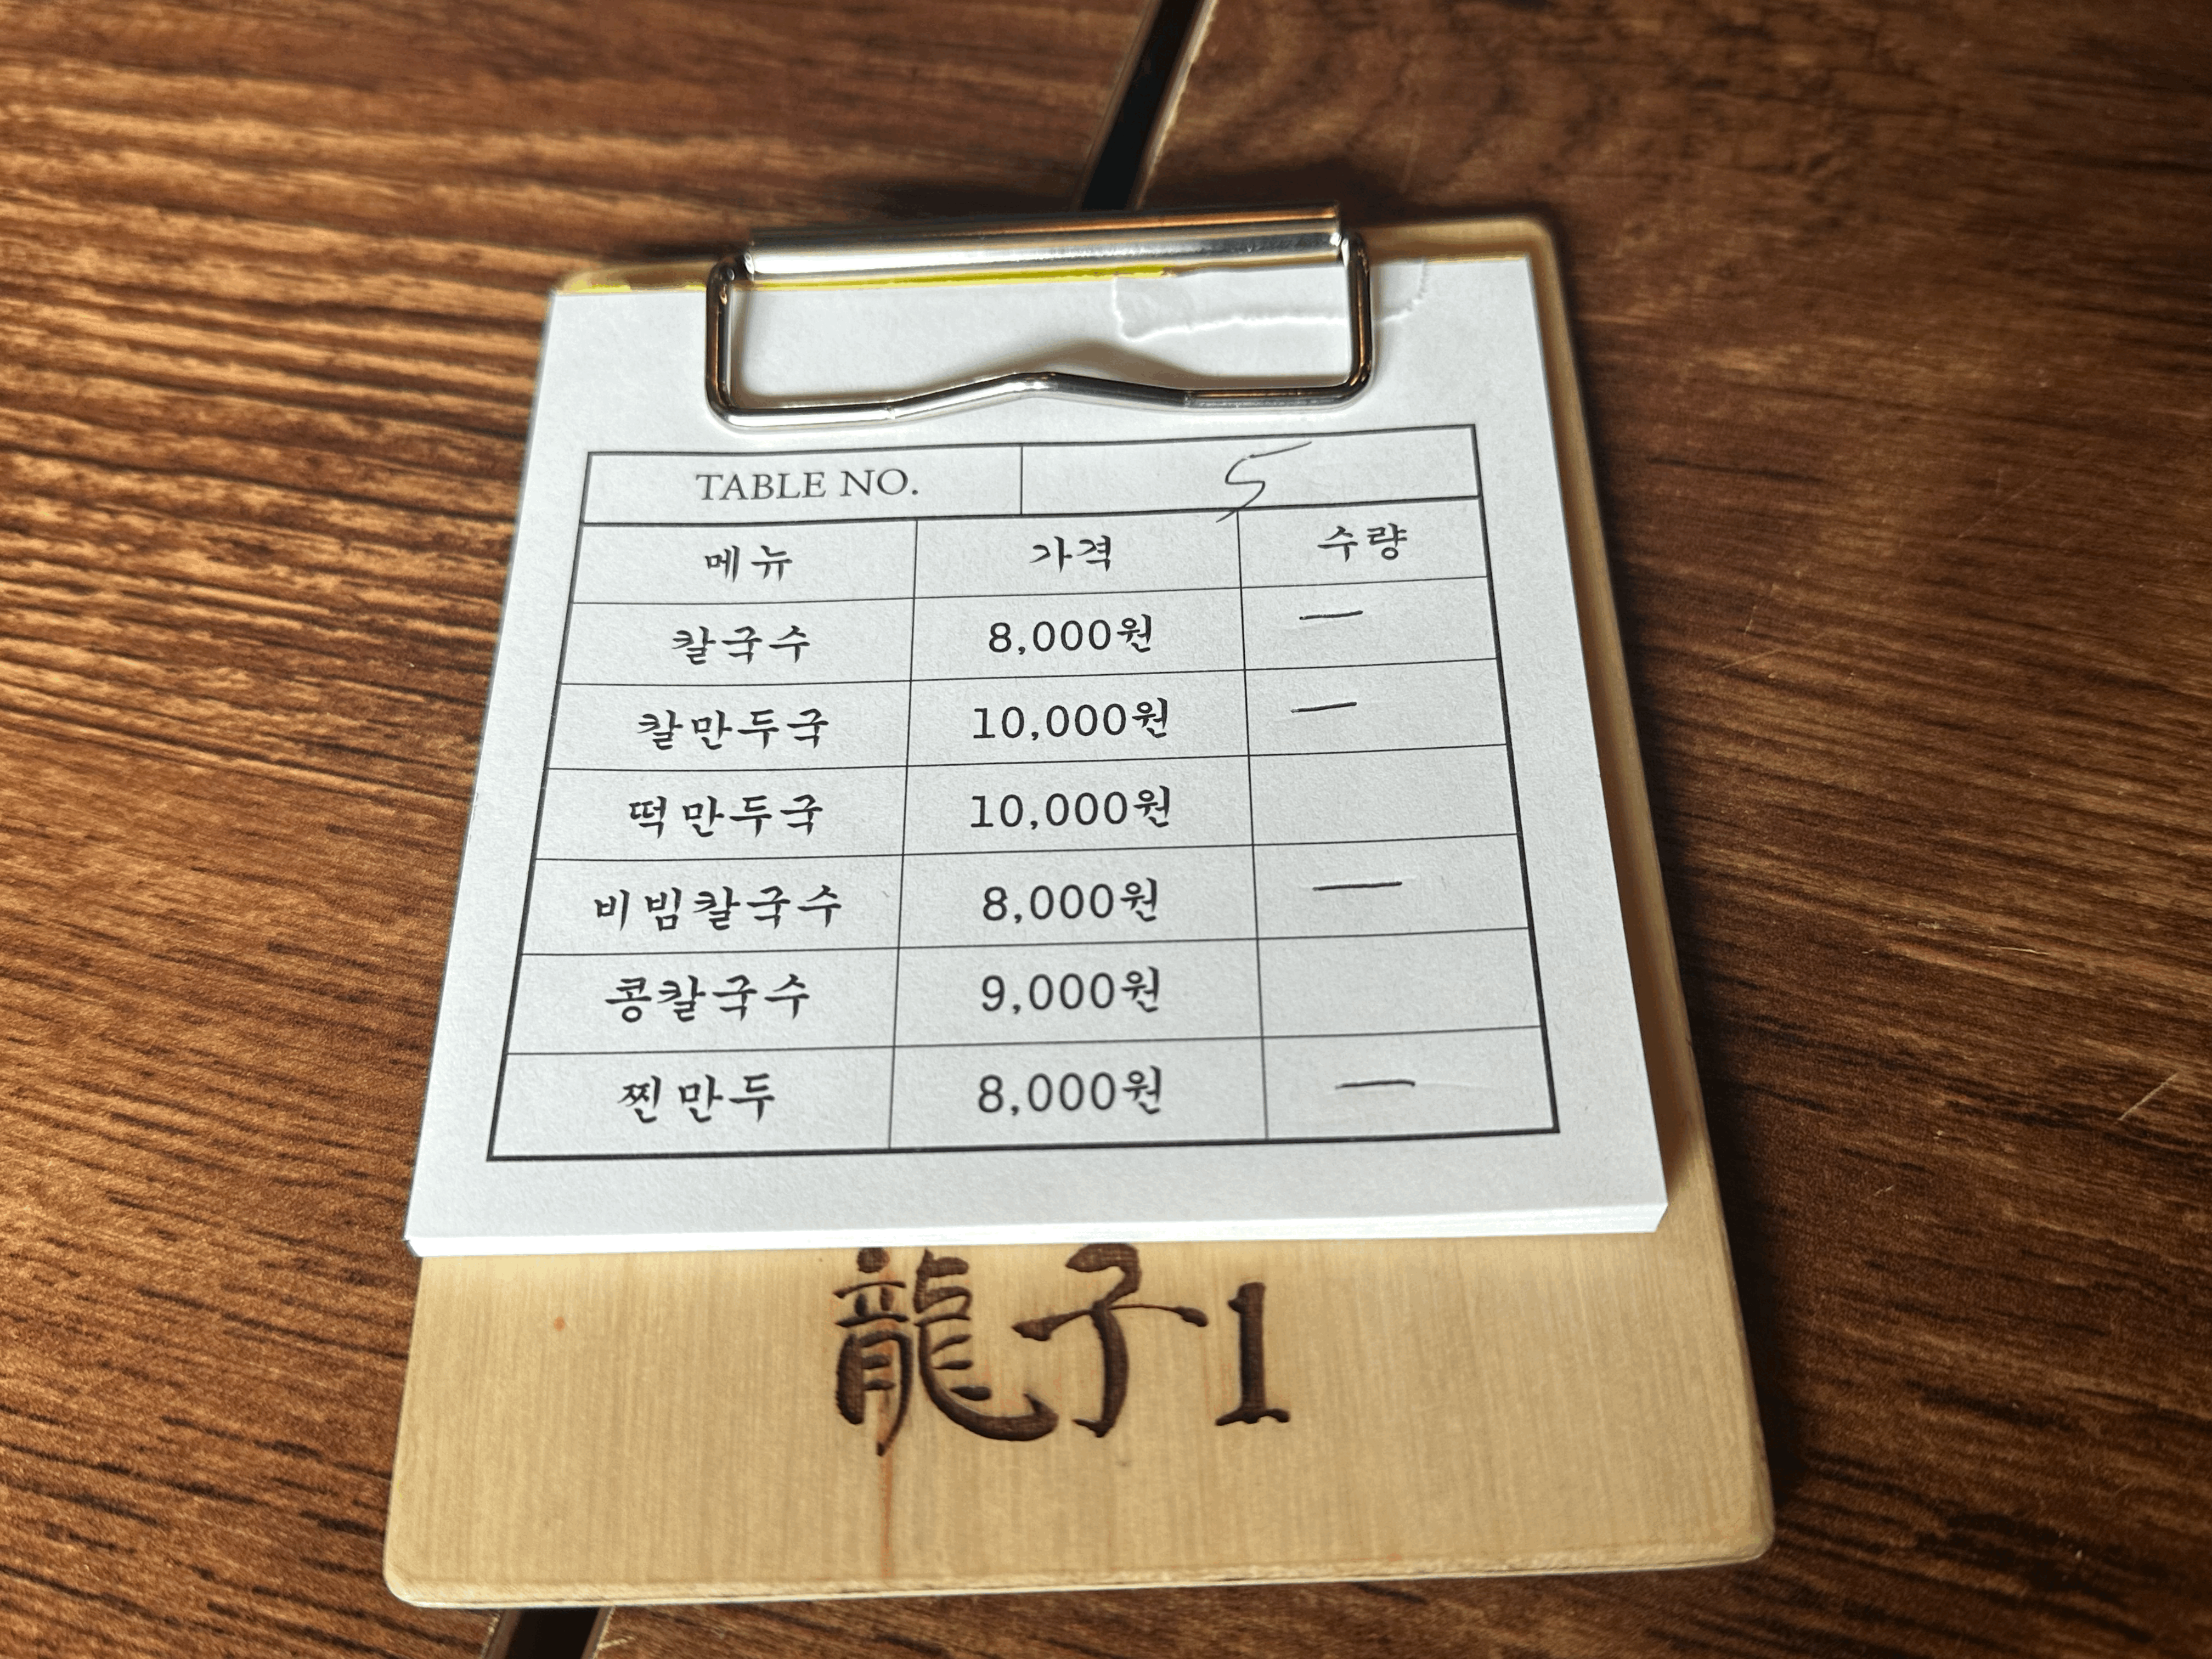 TABLE NO. 5
메뉴 가격 수량
칼국수 8,000원 一
칼만두국 10,000원 一
떡만두국 10,000원
비빔칼국수 8,000원 一
콩칼국수 9,000원
찐만두 8,000원 一
龍子1